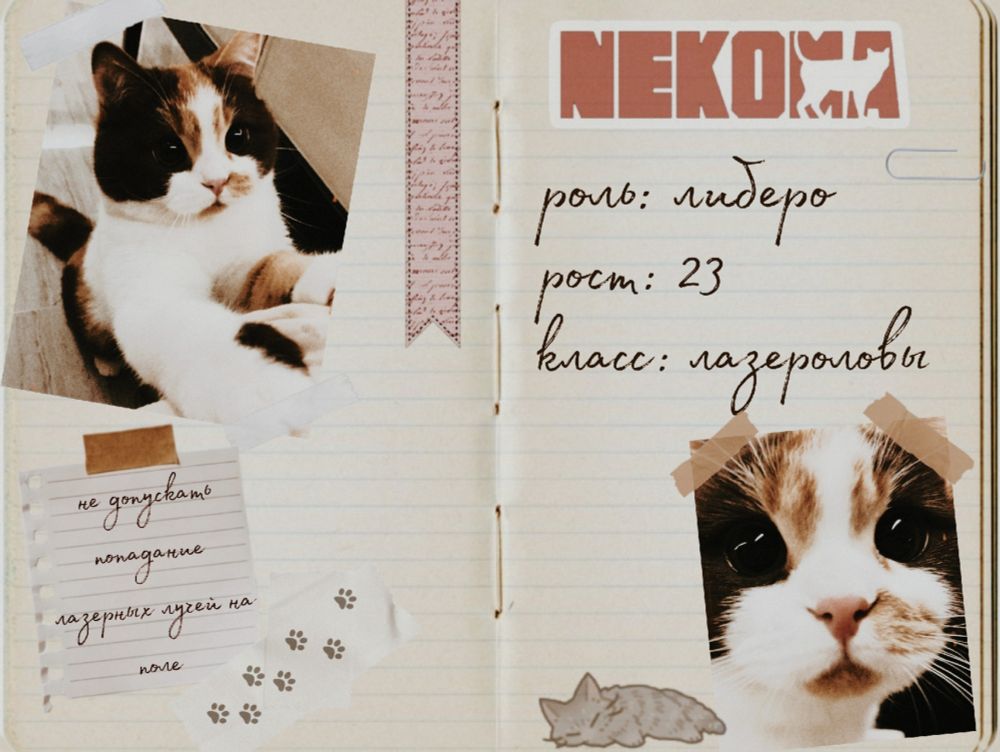 NEKOMA
роль: либеро
рост: 23
класс: лазероловы
не допускать
попадание
лазерных лучей на
поле